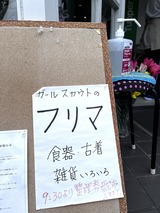 ガールスカウトの
フリマ
食器 古着
雑貨いろいろ
9:30より整理券配布